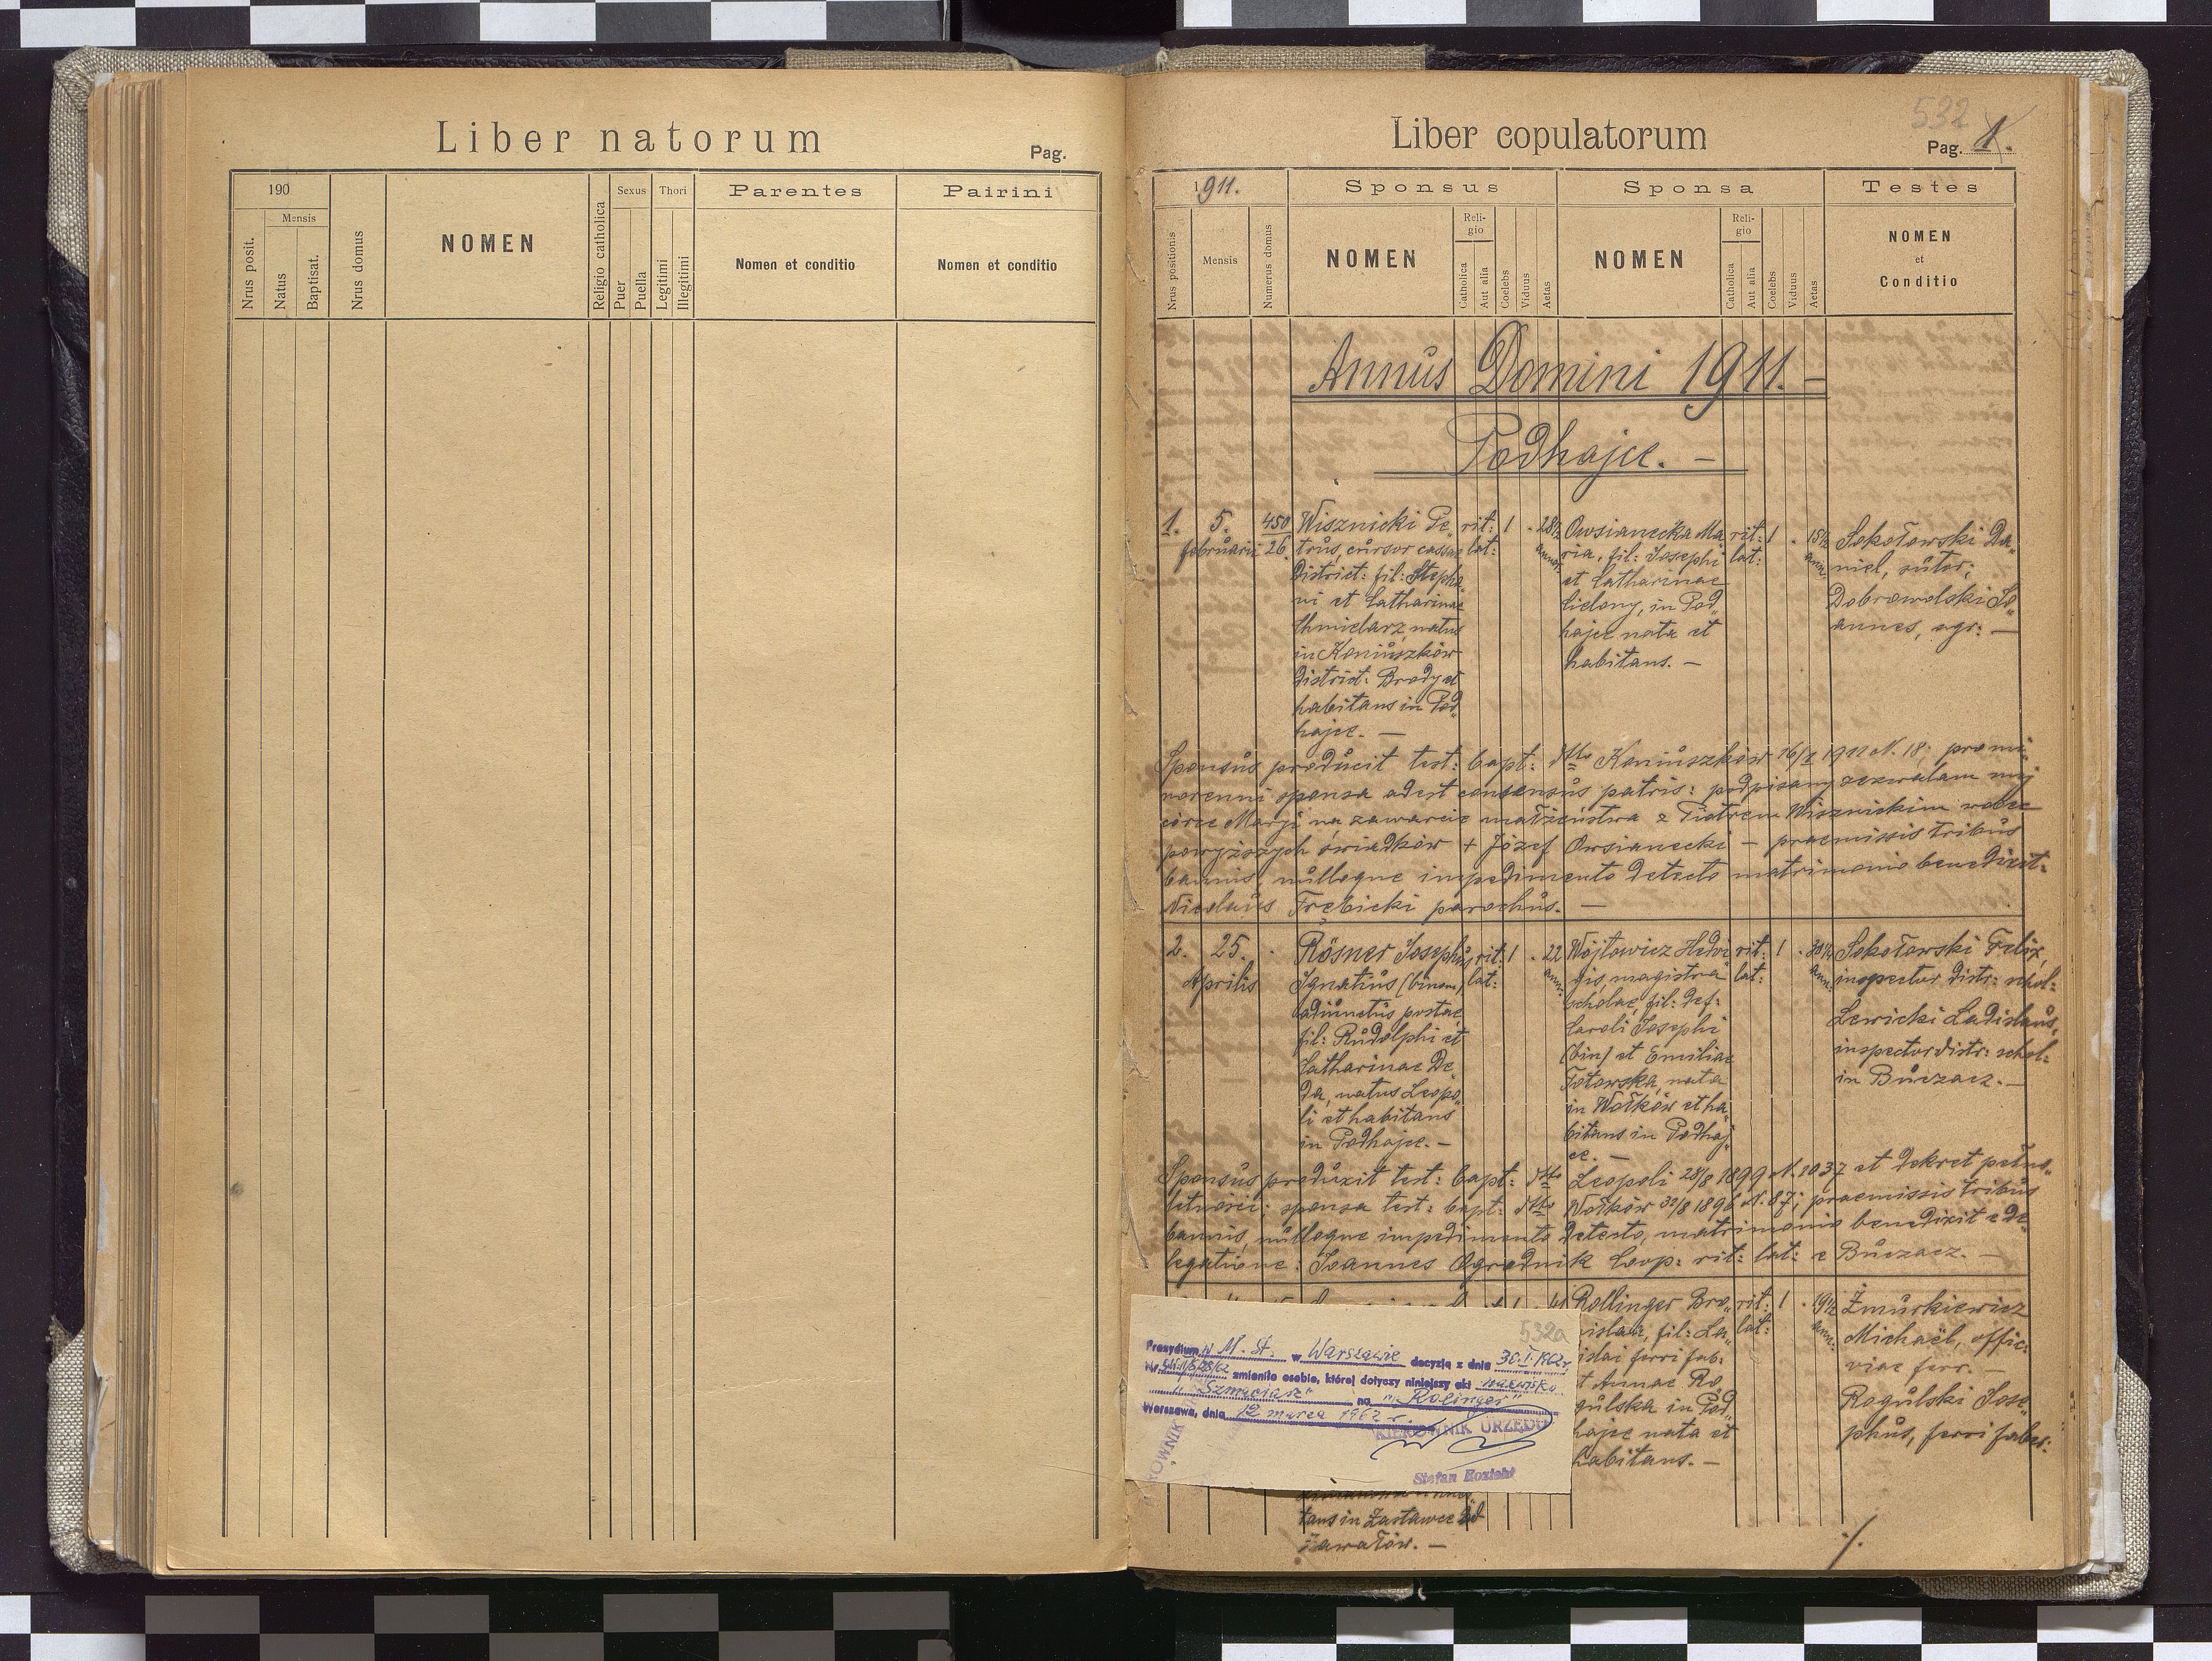 Liber natorum
Pag.
190
Mensis
Nrus posit.
Natus
Baptisat.
Nrus domus
NOMEN
Religio catholica
Sexus
Puer
Puella
Thori
Legitimi
Illegitimi
Parentes
Nomen et conditio
Pairini
Nomen et conditio
Liber copulatorum
532
Pag. 1.
1911.
Nrus positionis
Mensis
Numerus domus
Sponsus
NOMEN
Reli-
gio
Catholica
Aut alia
Coelebs
Viduus
Aetas
Sponsa
NOMEN
Reli-
gio
Catholica
Aut alia
Coelebs
Viduus
Aetas
Testes
NOMEN
et
Conditio
Annus Domini 1911. –
Podhajce. –
1. 5.
februarii
450
26
Wisznicki Pe„
trus, cursor cassae
district: fil: Stepha„
ni et Catharinae
Chmielarz, natus
in Koniuszków
district: Brody et
habitans in Pod„
hajce. –
rit: 1 . 28½
lat: annor.
Owsianecka Ma„
ria, fil: Josephi
et Catharinae
Cielony, in Pod„
hajce nata et
habitans. –
rit: 1 . 18½
lat: ann:
Sokołowski Da„
niel, sutor;
Dobrowolski Jo„
annes, agr: –
Sponsus producit test: bapt: dtto Koniuszków 16/1 1911 N. 18; pro mi„
norenni sponsa adest consensus patris: podpisany zezwalam mej
córce Marji na zawarcie małżeństwa z Piotrem Wisznickim wobec
powyższych świadków + Józef Owsianecki – praemissis tribus
bannis, nulloque impedimento detecto matrimonio benedixit:
Nicolaus Trębicki parochus. –
2. 25. .
Aprilis
Rösner Josephus
Ignatius (binom)
adiunctus postae
fil: Rudolphi et
Catharinae De„
da, natus Leopo„
li et habitans
in Podhajce. –
rit: 1 . 22
lat: ann:
Wójtowicz Hedvi„
gis, magistra
scholae, fil: def:
Caroli Josephi
(bin) et Emiliae
Totowska, nata
in Wołków et ha„
bitans in Podhaj„
ce. –
rit: 1 . 30½
lat: ann:
Sokołowski Felix,
inspector distr: schol:
Lewicki Ladislaus,
inspector distr: schol:
in Buczacz. –
Sponsus produxit test: bapt: dtto Leopoli 28/8 1899 N. 1037 et dekret pełno„
letności; sponsa test: bapt: dtto Wołków 31/8 1896 N. 87; praemissis tribus
bannis, nulloque impedimento detecto, matrimonio benedixit e de„
legatione: Joannes Ogrodnik Coop: rit: lat: e Buczacz. –
Rollinger Bro„
nislaa, fil: La„
islai ferri fab:
t Annae Ro„
gulska in Pod„
hajce nata et
habitans. –
rit: 1 . 19½
lat: ann:
Żmurkiewicz
Michaël, offic:
viae ferr. –
Rogulski Jose„
phus, ferri faber:
532a
Prezydium W M. St. w Warszawie decyzją z dnia 30.I.1962 r
zmieniło osobie, której dotyczy niniejszy akt nazwisko
"Szmaciarz" na "Rolinger"
Warszawa, dnia 12 marca 1962 r.
KIEROWNIK URZĘDU
tans in Zastawce ad
Zawałów. –
./.